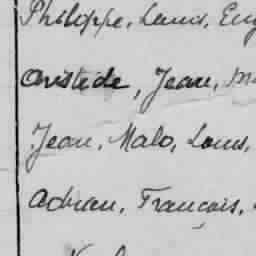 Philippe, Louis, Eug
Aristide, Jean, M
Jean, Malo, Louis,
Adrien, François,